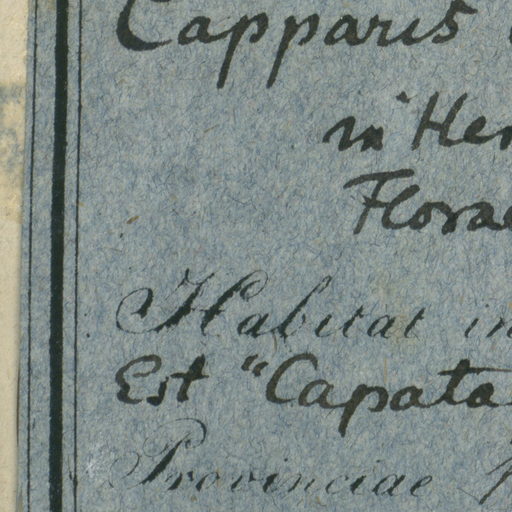 Capparis
in Her
Florae
Habitat in
Est "Capata
Provinciae